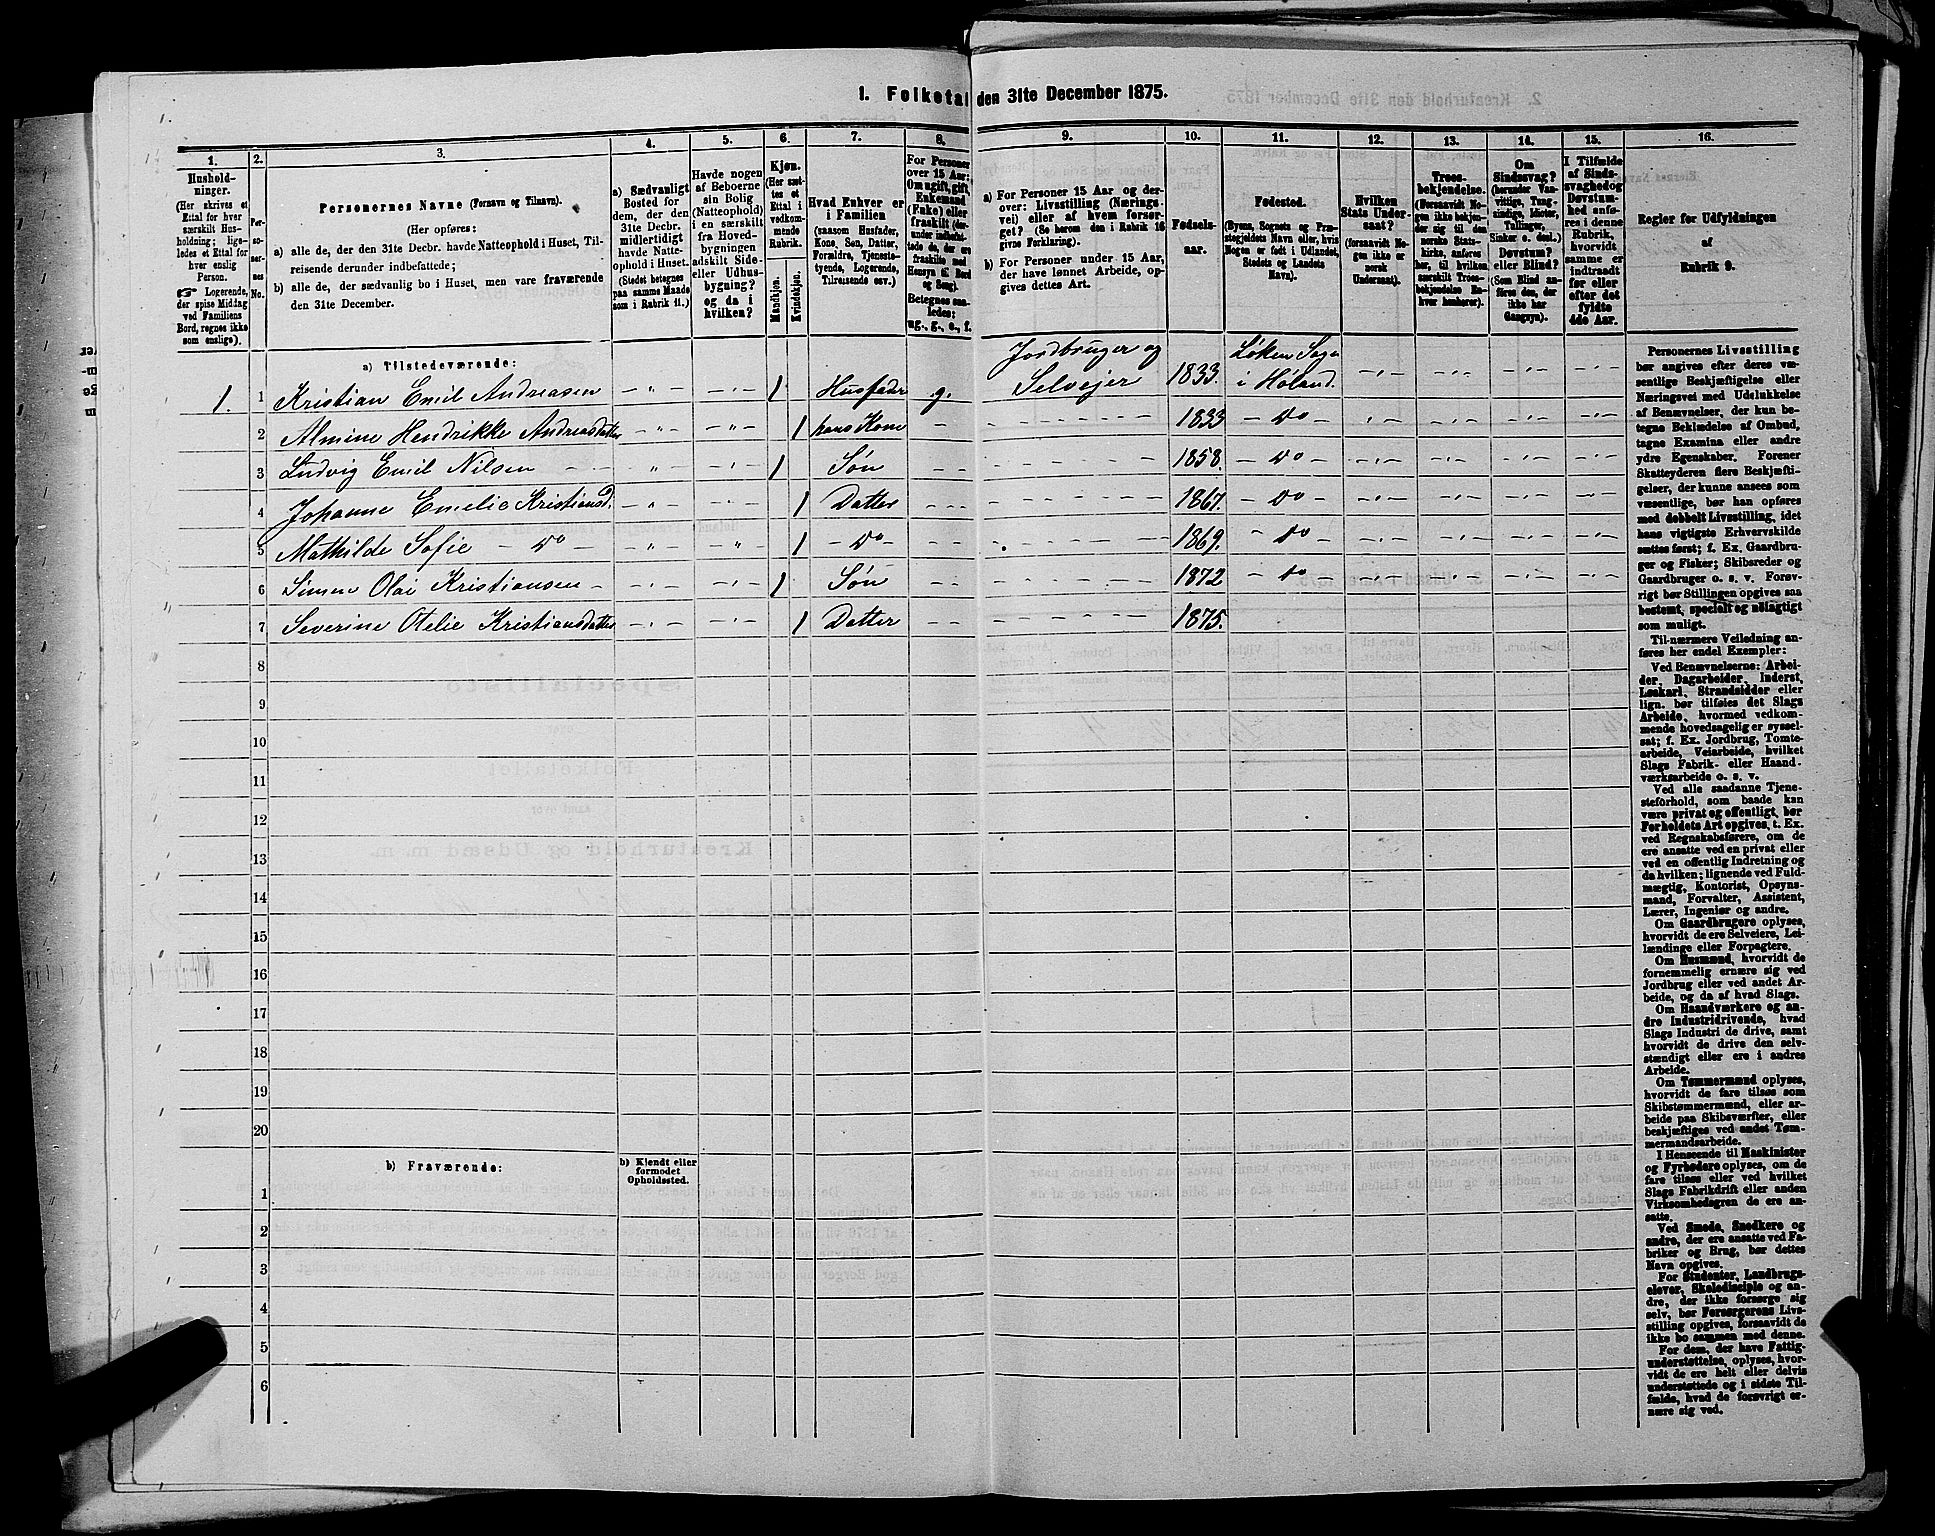 1. Folketal den 31te December 1875.
1. 2. 3. 4. 5. 6. 7. 8. 9. 10. 11. 12. 13. 14. 15. 16.
Hushold-
ninger.
(Her skrives et
Ettal for hver
særskilt Hus-
holdning; lige-
ledes et Ettal for
hver enslig
Person.
☞ Logerende,
der spise Middag
ved Familiens
Bord, regnes ikke
som enslige).
Per-
so-
ner-
nes
No.
Personernes Navne (Fornavn og Tilnavn).
(Her opføres:
a) alle de, der den 31te Decbr. havde Natteophold i Huset, Til-
reisende derunder indbefattede;
b) alle de, der sædvanlig bo i Huset, men vare fraværende
den 31te December.
a) Sædvanligt
Bosted for
dem, der den
31te Decbr.
midlertidigt
havde Natte-
ophold i Huset.
(Stedet betegnes
paa samme Maade
som i Rubrik 11.)
Havde nogen
af Beboerne
sin Bolig
(Natteophold)
i en særskilt
fra Hoved-
bygningen
adskilt Side-
eller Udhus-
bygning?
og da i
hvilken?
Kjøn.
(Her sæt-
tes et
Ettal i
vedkom-
mende
Rubrik.
Mandkjøn.
Kvindekjøn.
Hvad Enhver er
i Familien
(saasom Husfader,
Kone, Søn, Datter,
Forældre, Tjeneste-
tyende, Logerende,
Tilreisende osv.)
For Personer
over 15 Aar:
Om ugift, gift,
Enkemand
(Enke) eller
fraskilt (der-
under indbefat-
tede de, der ere
fraskilte med
Hensyn til Bord
og Seng).
Betegnes saa-
ledes:
ug., g., e., f.
a) For Personer 15 Aar og der-
over: Livsstilling (Nærings-
vei) eller af hvem forsør-
get? (Se herom den i Rubrik 16
givne Forklaring).
b) For Personer under 15 Aar,
der have lønnet Arbeide, op-
gives dettes Art.
Fødsels-
aar.
Fødested.
(Byens, Sognets og Præ-
stegjeldets Navn eller, hvis
Nogen er født i Udlandet,
Stedets og Landets
Navn).
Hvilken
Stats Under-
saat?
(forsaavidt No-
gen ikke er
norsk
Undersaat).
Troes-
bekjendelse.
(Forsaavidt No-
gen ikke bekjen-
der sig til den
norske Stats-
kirke, anfø-
res her, til hvilken
særskilt Troes-
bekjendelse En-
hver henhører).
Om
Sindssvag?
(herunder Van-
vittige, Tung-
sindige, Idioter,
Tullinger,
Sinker o. desl.)
Døvstum?
eller Blind?
(Som Blind an-
føres den, der
ikke har
Gangsyn).
I Tilfælde
af Sinds-
svaghed og
Døvstum-
hed anfø-
res i denne
Rubrik,
hvorvidt
samme er
indtraadt
før eller
efter det
fyldte
4de Aar.
Regler for Udfyldningen
af
Rubrik 9.
a) Tilstedeværende:
1. 1 Kristian Emil Andreasen – " – – " – 1 Husfader g. Jordbruger og Selvejer 1833. Løken Sogn i Høland. – " – – " – – " – – " –
2 Almine Hendrikke Andreasdatter – " – – " – 1 hans Kone – 1833 – do – " – – " – – " – – " –
3 Ludvig Emil Nilsen – – " – – " – 1 Søn – – 1858. – do – – " – – " – – " – – " –
4 Johanne Emelie Kristiansd. – " – – " – 1 Datter – – – 1867. – do – – " – – " – – " – – " –
5 Mathilde Sofie – do – – " – – " – 1 – do – – – 1869. – do – – " – – " – – " – – " –
6 Simen Olai Kristiansen – – " – – " – 1 Søn – – 1872 – do – – " – – " – – " – – " –
7 Severine Otelie Kristiansdatter – " – – " – 1 Datter – – 1875. – do – – " – – " – – " – – " –
8
9
10
11
12
13
14
15
16
17
18
19
20
b) Fraværende:
b) Kjendt eller
formodet
Opholdssted.
1
2
3
4
5
6
Personernes Livsstilling
bør angives efter deres væ-
sentlige Beskjæftigelse eller
Næringsvei med Udelukkelse
af Benævnelser, der kun be-
tegne Beklædelse af Ombud,
tagne Examina eller andre
ydre Egenskaber. Forener
Skatteyderen flere Beskjæfti-
gelser, der kunne ansees som
væsentlige, bør han opføres
med dobbelt Livsstilling, idet
hans vigtigste Erhvervskilde
sættes først; f. Ex. Gaardbru-
ger og Fisker; Skibsreder og
Gaardbruger o. s. v. Forøv-
rigt bør Stillingen opgives saa
bestemt, specielt og nøiagtigt
som muligt.
Til nærmere Veiledning an-
føres her endel Exempler:
Ved Benævnelserne: Arbei-
der, Dagarbeider, Inderst,
Løskarl, Strandsidder eller
lign. bør tilføies det Slags
Arbeide, hvormed vedkom-
mende hovedsagelig er syssel-
sat; f. Ex. Jordbrug, Tomte-
arbeide, Veiarbeide, hvilket
Slags Fabrik- eller Haand-
værksarbeide o. s. v.
Ved alle saadanne Tjene-
steforhold, som baade kan
være privat og offentligt, bør
Forholdets Art opgives, t. Ex.
ved Regnskabsførere, om de
ere ansatte ved en privat eller
ved en offentlig Indretning og
da hvilken; lignende ved Fuld-
mægtig, Kontorist, Opsyns-
mand, Forvalter, Assistent,
Lærer, Ingeniør og andre.
Om Gaardbrugere oplyses,
hvorvidt de ere Selveiere, Lei-
lændinge eller Forpagtere.
Om Husmænd, hvorvidt de
fornemmelig ernære sig ved
Jordbrug eller ved andet Ar-
beide, og da af hvad Slags.
Om Haandværkere og an-
dre Industridrivende, hvad
Slags Industri de drive, samt
hvorvidt de drive den selv-
stændigt eller ere i andres
Arbeide.
Om Tømmermænd oplyses,
hvorvidt de fare tilsøs som
Skibstømmermænd, eller ar-
beide paa Skibsværfter, eller
beskjæftiges ved andet Tøm-
mermandsarbeide.
I Henseende til Maskinister
og Fyrbødere oplyses, om de
fare tilsøs eller ved hvilket
Slags Fabrikdrift eller anden
Virksomhedsgren de ere an-
satte.
Ved Smede, Snedkere og
andre, der ere ansatte ved Fa-
briker og Brug, bør dettes
Navn opgives.
For Studenter, Landbrugs-
elever, Skoledisciple og an-
dre, der ikke forsørge sig
selv, bør Forsørgerens Livs-
stilling opgives, forsaavidt de
ikke bo sammen med denne.
For dem, der have Fattig-
understøttelse, oplyses, hvor-
vidt de ere helt eller delvis
understøttede og i sidste Til-
fælde, hvad de forøvrigt er-
nære sig ved.